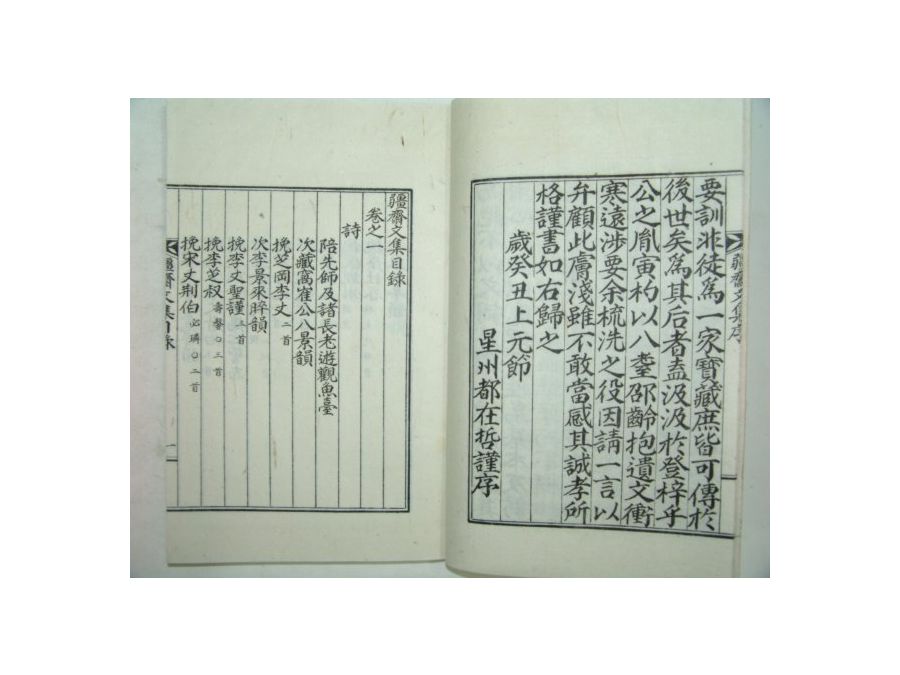 要訓非徒爲一家寶藏庶皆可傳於
後世矣爲其后者盍汲汲於登梓乎
公之胤寅杓以八耋邵齡抱遺文衝
寒遠涉要余梳洗之役因請一言以
弁顧此膚淺雖不敢當感其誠孝所
格謹書如右歸之
歲癸丑上元節
星州都在哲謹序
疆齋文集序
疆齋文集目錄
卷之一
詩
陪先師及諸長老遊觀魚臺
次藏窩崔公八景韻
挽芝岡李丈二首
次李景來晬韻
挽李丈聖謹二首
挽李芝叔壽馨○三首
挽宋丈荆伯必璘○二首
疆齋文集目錄
一